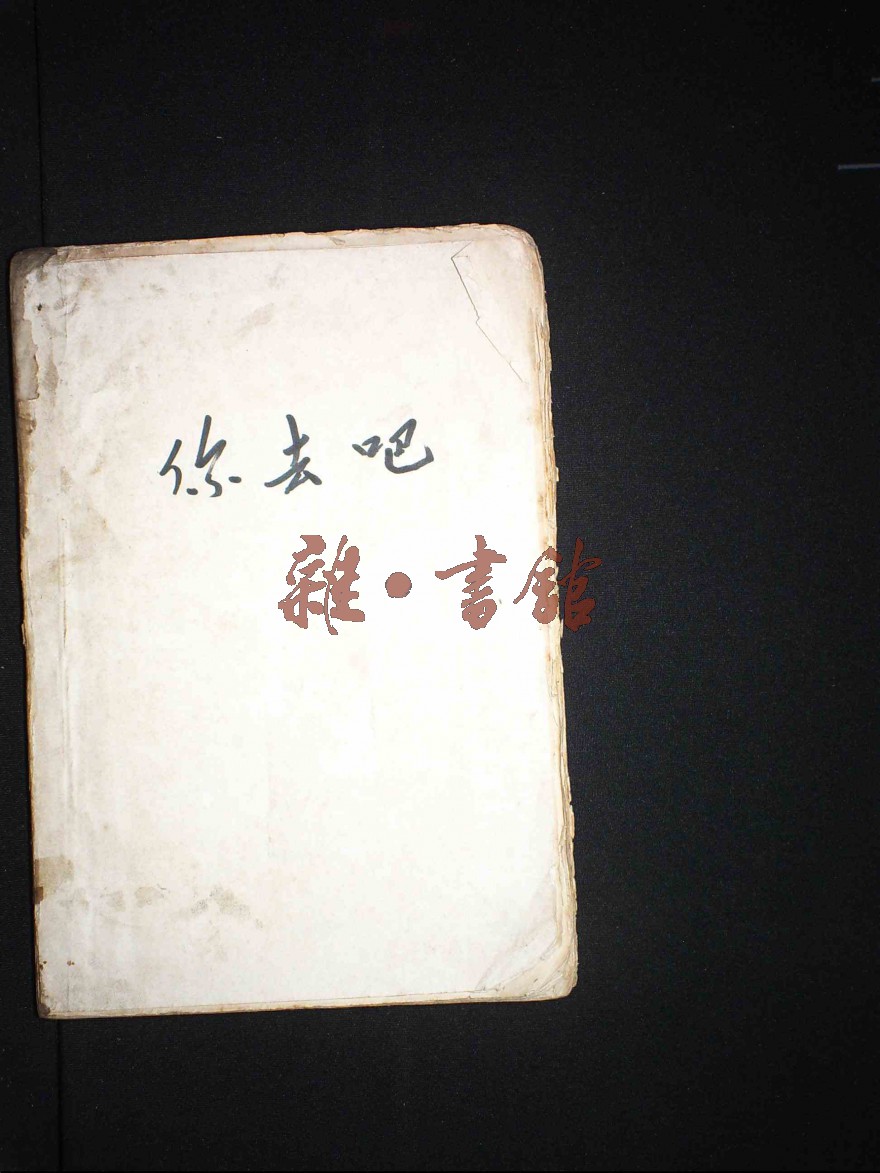 你去吧
雜·書館